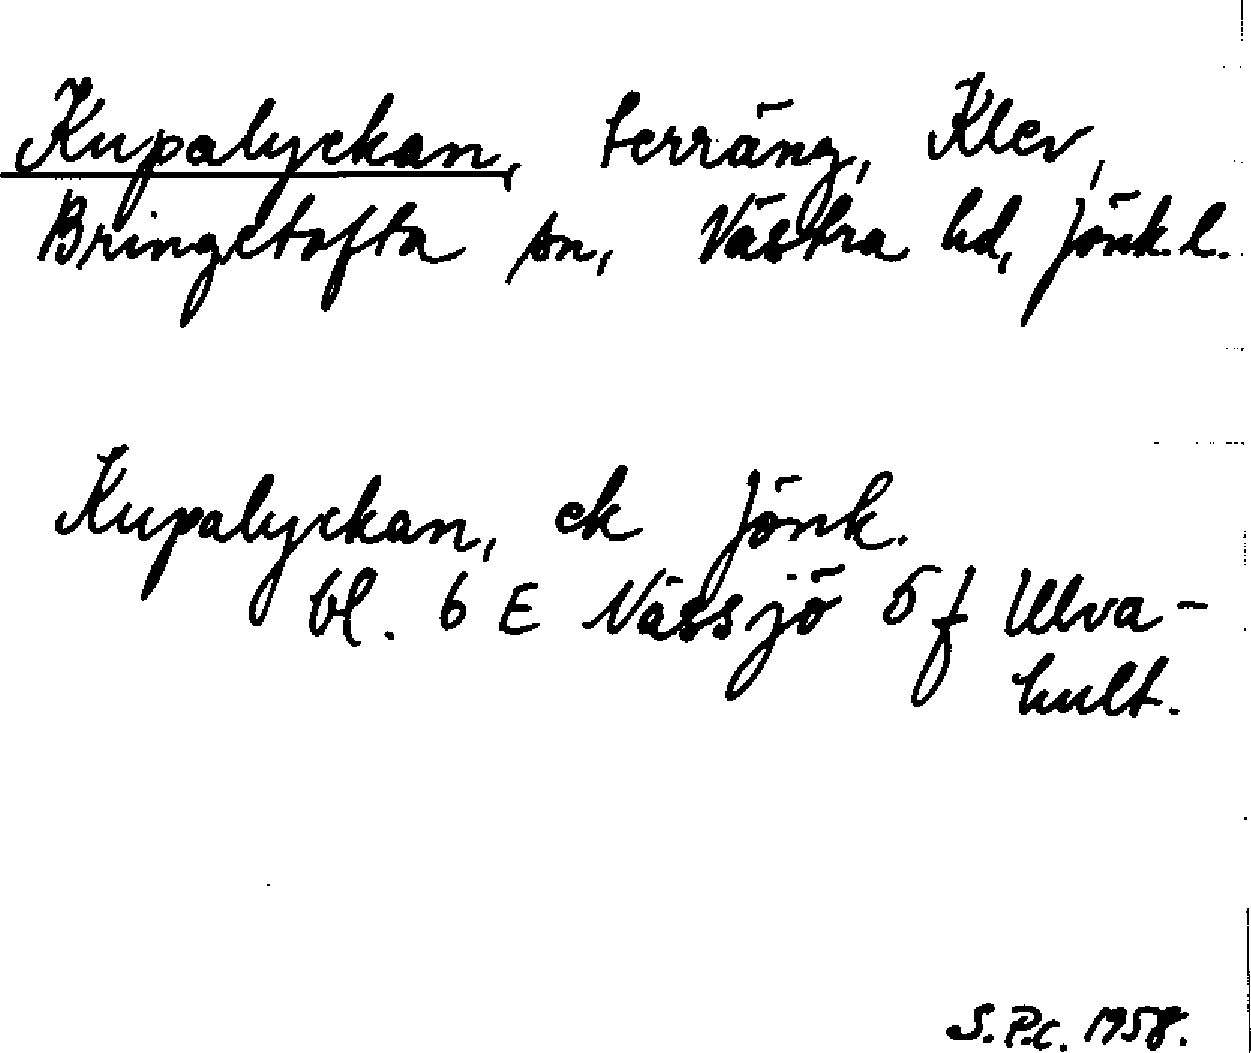 Kupalyckan, terräng, Klev,
Bringetofta sn, Västra hd, Jönk. l.
Kupalyckan, ek Jönk.
bl. 6 E Nässjö 5 f Ulva-
hult.
S.P.C. 1958.